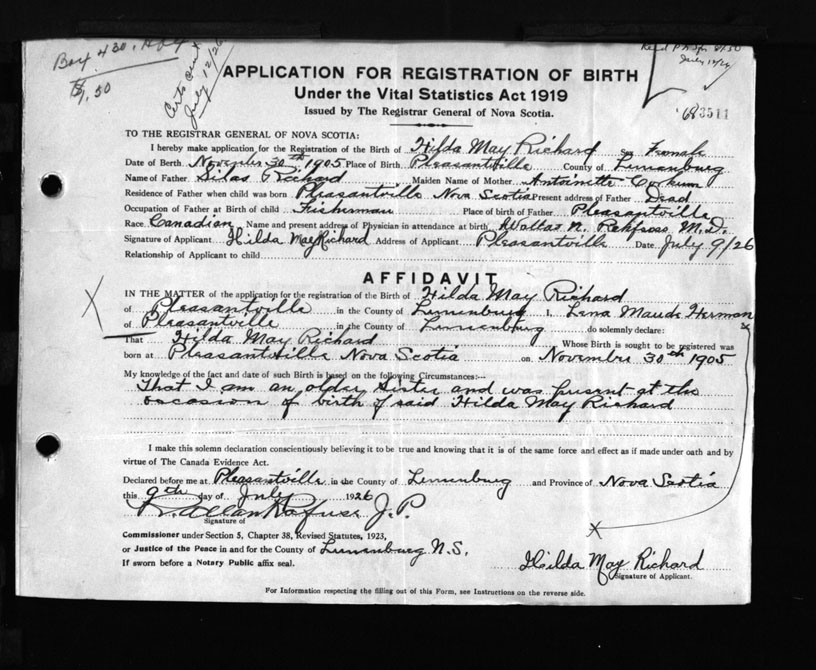 Box 430, 
$1.50
Certs Sent
July 12/26
July 12/26
3511
APPLICATION FOR REGISTRATION OF BIRTH
Under the Vital Statistics Act 1919
Issued by The Registrar General of Nova Scotia.
TO THE REGISTRAR GENERAL OF NOVA SCOTIA:
I hereby make application for the Registration of the Birth of Hilda May Richard Sex Female
Date of Berth November 30th 1905 Place of Birth Pleasantville County of Lunenburg
Name of Father Silas Richard Maiden Name of Mother Antoinette Corkum
Residence of Father when child was born Pleasantville Nova Scotia Present address of Father Dead
Occupation of Father at Birth of child Fisherman Place of birth of Father Pleasantville
Race Canadian Name and present address of Physician in attendance at birth Walter N. Rehfuss M.D.
Signature of Applicant Hilda May Richard Address of Applicant Pleasantville Date July 9/26
Relationship of Applicant to child
AFFIDAVIT
IN THE MATTER of the application for the registration of the Birth of Hilda May Richard
of Pleasantville in the County of Lunenburg I, Lena Maude Herman
of Pleasantville in the County of Lunenburg do solemnly declare:
That Hilda May Richard Whose Birth is sought to be registered was
born at Pleasantville Nova Scotia on November 30th 1905
My knowledge of the fact and date of such Birth is based on the following Circumstances:—
That I am an older sister and was present at the
occasion of birth of said Hilda May Richard
I make this solemn declaration conscientiously believing it to be true and knowing that it is of the same force and effect as if made under oath and by
virtue of The Canada Evidence Act.
Declared before me at Pleasantville in the County of Lunenburg and Province of Nova Scotia
this 9th day of July 1926
R. Allan Rafuse J.P.
Signature of
Commissioner under Section 5, Chapter 38, Revised Statutes, 1923,
or Justice of the Peace in and for the County of Lunenburg N.S.
If sworn before a Notary Public affix seal.
Hilda May Richard
Signature of Applicant.
For Information respecting the filling out of this Form, see Instructions on the reverse side.